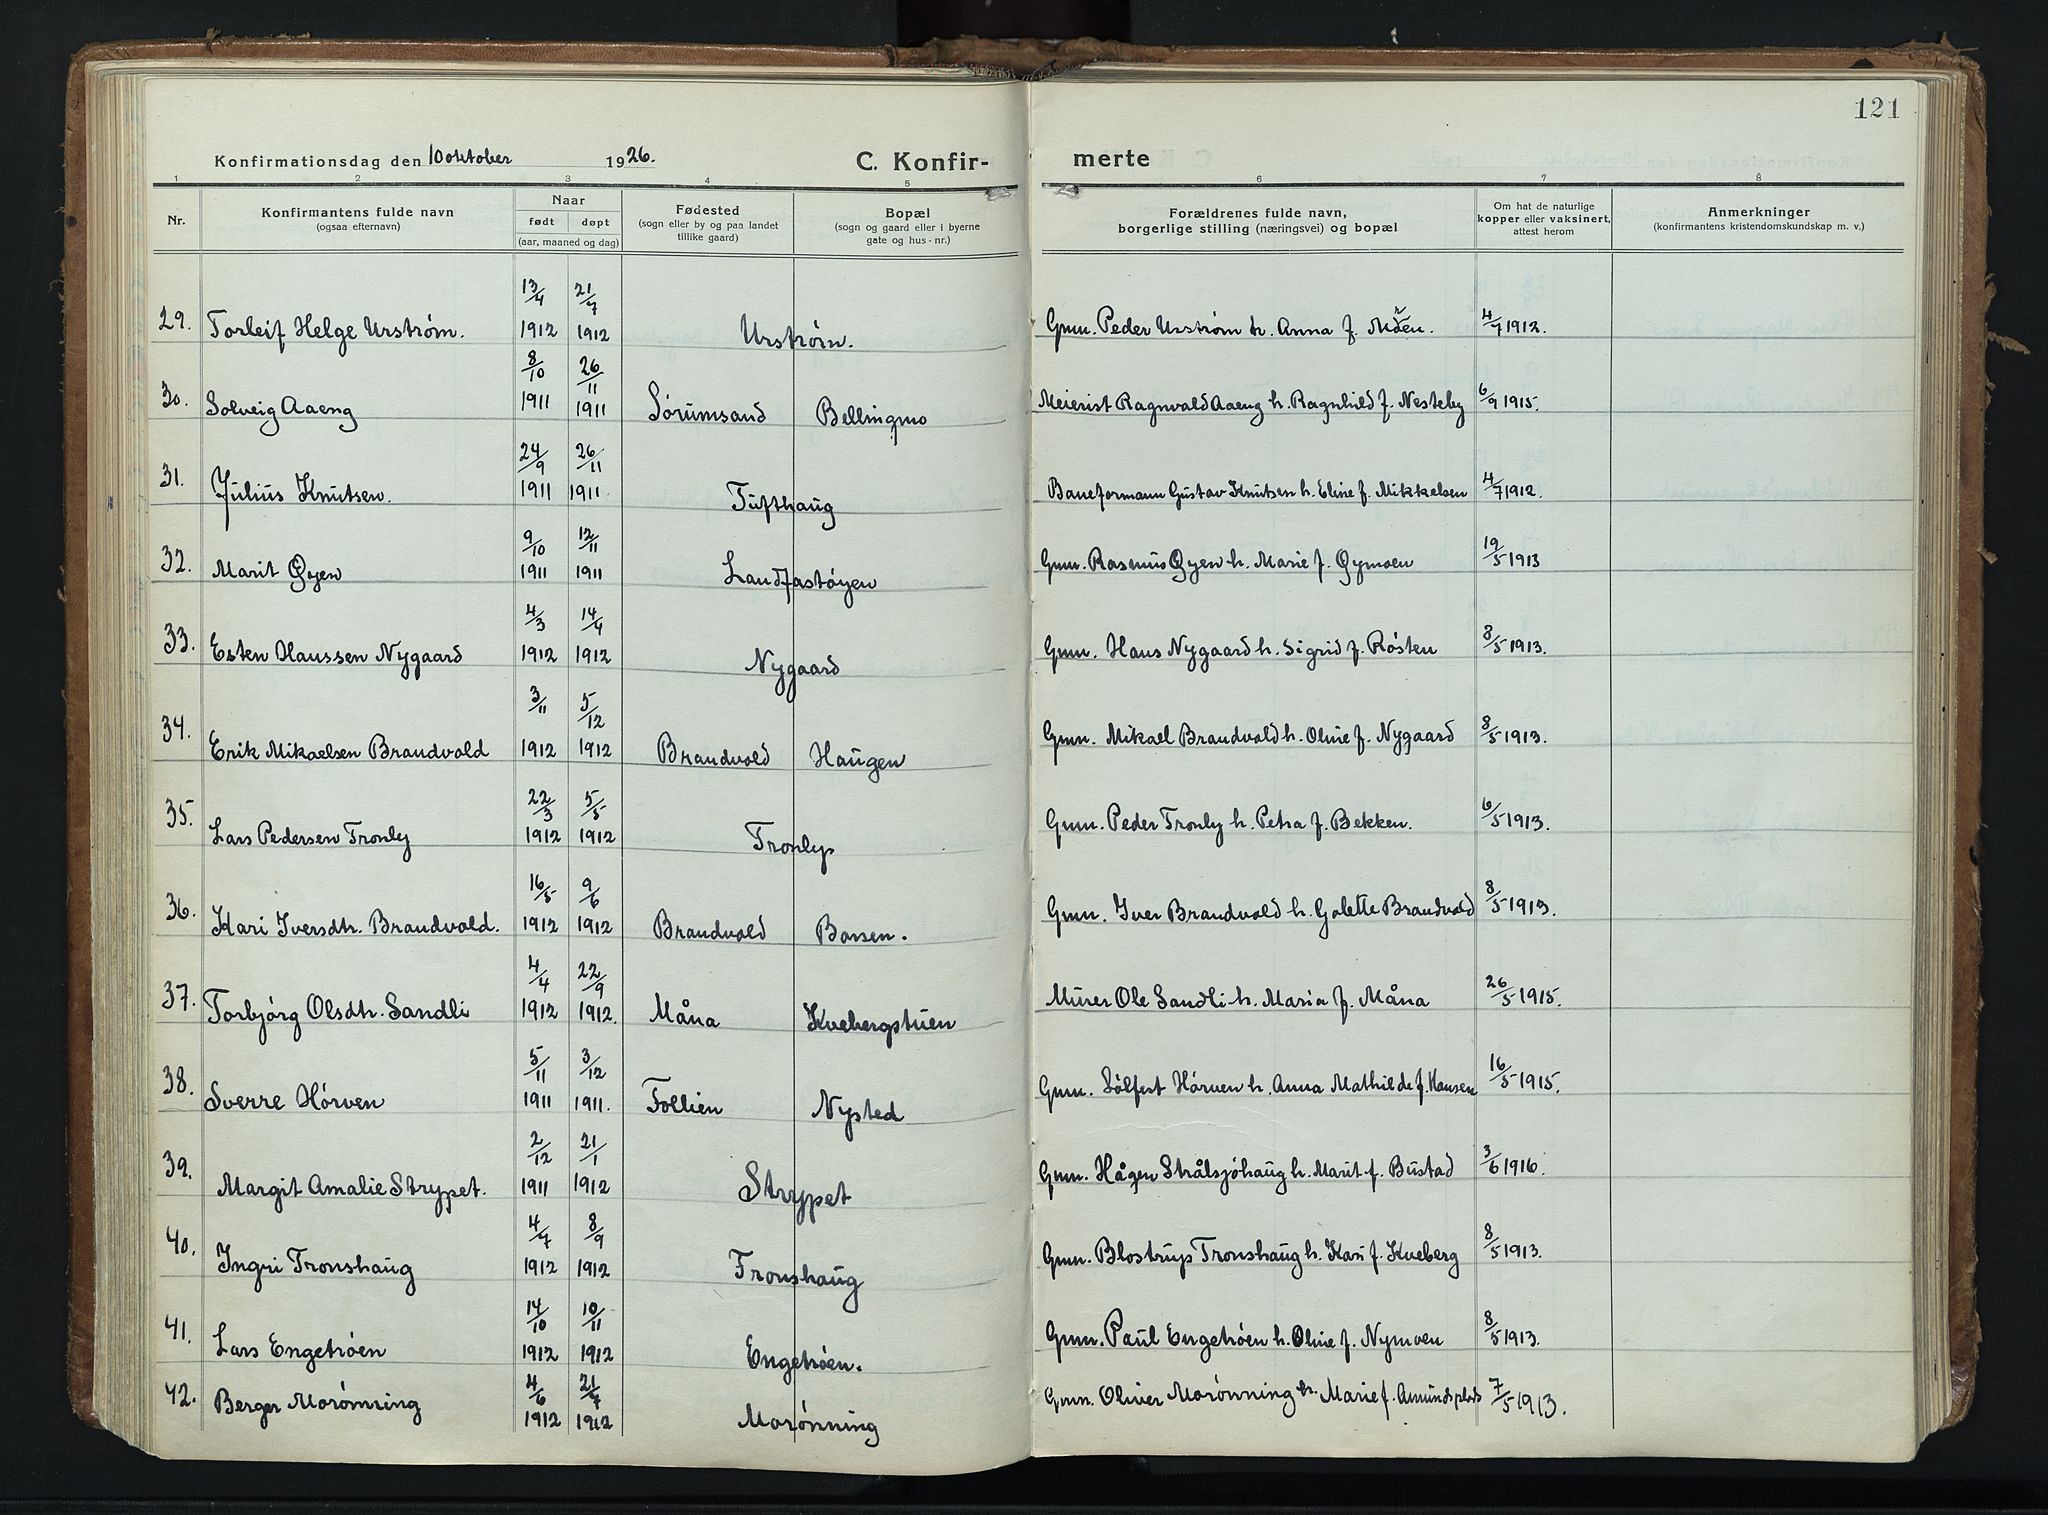 121
Konfirmationsdag den 10 oktober 1926. C. Konfir- merte
1 2 3 4 5 6 7 8
Nr. Konfirmantens fulde navn (ogsaa efternavn) Naar født døpt (aar, maaned og dag) Fødested (sogn eller by og paa landet tillike gaard) Bopæl (sogn og gaard eller i byerne gate og hus-nr.) Forældrenes fulde navn, borgerlige stilling (næringsvei) og bopæl Om hat de naturlige kopper eller vaksinert, attest herom Anmerkninger (konfirmantens kristendomskundskap m. v.)
29. Torleif Helge Urstrøm. 13/4 1912 21/7 1912 Urstrøm. Gmn. Peder Urstrøm h. Anna f. 4/7 1912.
30. Solveig Aaeng 8/10 1911 26/11 1911 Sørumsand Bellingmo Meierist Ragnvald Aaeng h. Ragnhild f. Nesteby 6/9 1915.
31. Julius Knutsen. 24/9 1911 26/11 1911. Tufthaug Baneformann Gustav Knutsen h. Eline f. Mikkelsen 4/7 1912.
32. Marit Øyen 9/10 1911 12/11 1911 Landfastøyen Gmn. Rasmus Øyen h. Marie f. Øymoen 19/5 1913
33. Esten Hanssen Nygaard 4/3 1912 14/4 1912 Nygaard Gmn. Hans Nygaard h. Sigrid f. Røsten 8/5 1913.
34. Erik Mikaelsen Brandvold 3/11 1912 5/12 1912 Brandvold Haugen Gmn. Mikael Brandvold h. Oline f. Nygaard 8/5 1913.
35. Lars Pedersen Tronly 22/3 1912 5/5 1912 Tronly Gmn. Peder Tronly h. Petra f. Bekken. 6/5 1913.
36. Kari Iversdtr. Brandvold. 16/5 1912 9/6 1912 Brandvold Borsen. Gmn. Iver Brandvold h. Golette Brandvold 8/5 1913.
37. Torbjørg Olsdtr. Sandli 4/4 1912 22/9 1912. Måna Kvebergstuen Murer Ole Sandli h. Maria f. Måna 26/5 1915.
38. Sverre Hørven 5/11 1911 3/12 1911. Follien Nysted Gmn. Sølfest Hørven h. Anna Mathilde f. Hansen 16/5 1915.
39. Margit Amalie Strypet. 2/12 1911 21/1 1912 Strypet Gmn. Hågen Strålsjøhaug h. Marit f. Bustad 3/6 1916.
40. Ingri Tronshaug 4/7 1912 8/9 1912 Tronshaug Gmn. Blostrup Tronshaug h. Kari f. Kveberg 8/5 1913.
41. Lars Engetrøen 14/10 1912 10/11 1912 Engetrøen. Gmn. Paul Engetrøen h. Oline f. Nymoen 8/5 1913.
42. Berger Morønning 4/6 1912 21/7 1912 Morønning Gmn. Oliver Morønning h. Marie f. Amundsplads 7/5 1913.